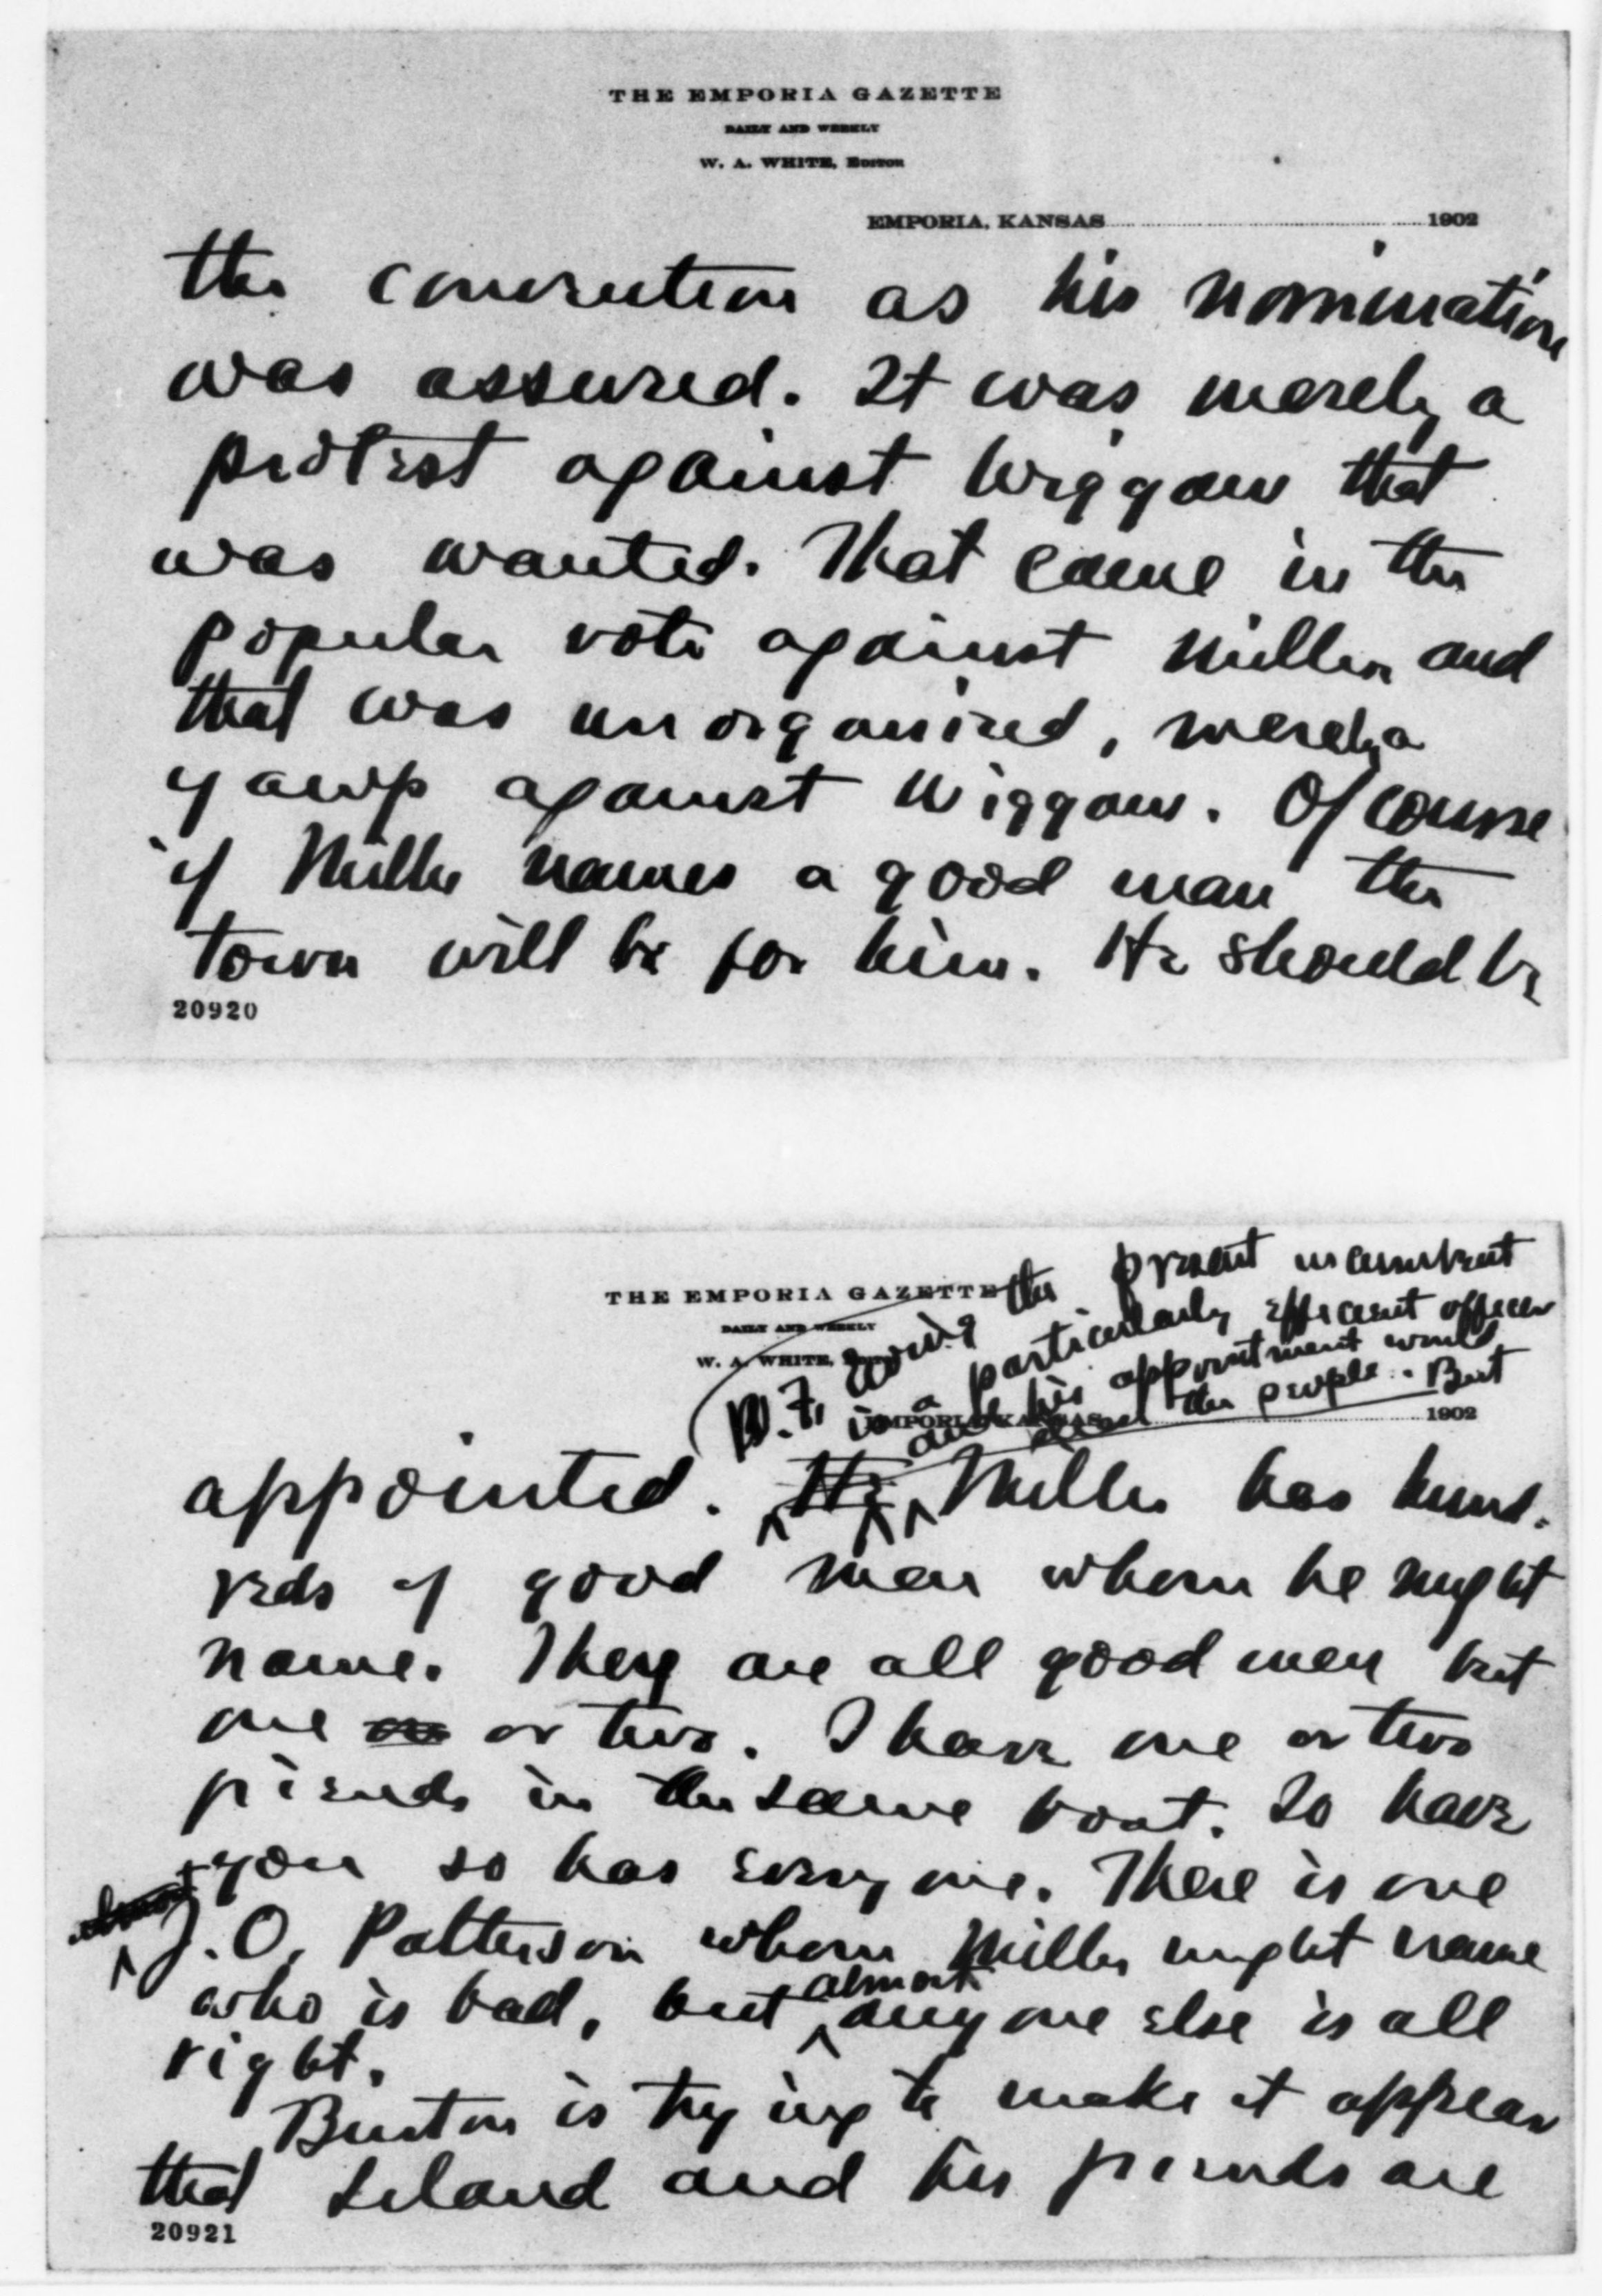 THE EMPORIA GAZETTE
DAILY AND WEEKLY
W. A. WHITE, Editor
EMPORIA, KANSAS 1902
the convention as his nomination
was assured. It was merely a
protest against Wiggam that
was wanted. That came in the
popular vote against Miller and
that was unorganized, merely a
yawp against Wiggam. Of course
if Miller names a good man the
town will be for him. He should be
20920
THE EMPORIA GAZETTE
DAILY AND WEEKLY
W. A. WHITE,
EMPORIA, KANSAS 1902
W. F. Ewing the present incumbent
is a particularly efficient officer
and his appointment would
please the people. But
appointed. He Miller has hund-
reds of good men whom he might
name. They are all good men but
one or or two. I have one or two
friends in the same boat. So have
you so has every one. There is one
almost
J. O. Patterson whom Miller might name
who is bad, but almost any one else is all
right.
Burton is trying to make it appear
that Leland and his friends are
20921